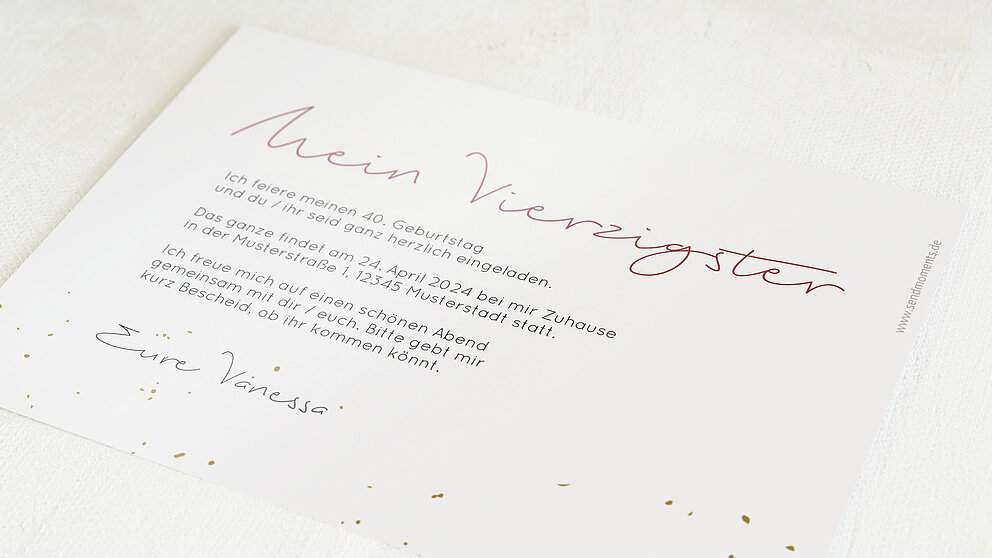 Mein Vierzigster
Ich feiere meinen 40. Geburtstag
und du / ihr seid ganz herzlich eingeladen.
Das ganze findet am 24. April 2024 bei mir Zuhause
in der Musterstraße 1, 12345 Musterstadt statt.
Ich freue mich auf einen schönen Abend
gemeinsam mit dir / euch. Bitte gebt mir
kurz Bescheid, ob ihr kommen könnt.
Eure Vanessa
www.sendmoments.de